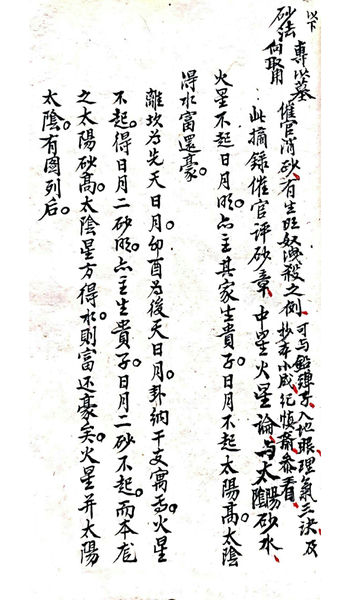 以下
砂法
向取用
專以墓
催官消砂有生旺奴洩殺之例可与鉛彈子入地眼理氣三訣及
抄本小成紀慎齋參看
此摘錄催官評砂章中星火星論与太陽太陰砂水
火星不起日月明亦主其家生貴子日月不起太陽高太陰
得水富還豪
離坎為先天日月卯酉為後天日月卦納干支寓焉火星
不起得日月二砂明亦主生貴子日月二砂不起而本龙
之太陽砂高太陰星方得水則富还豪矣火星并太陽
太陰有图列后